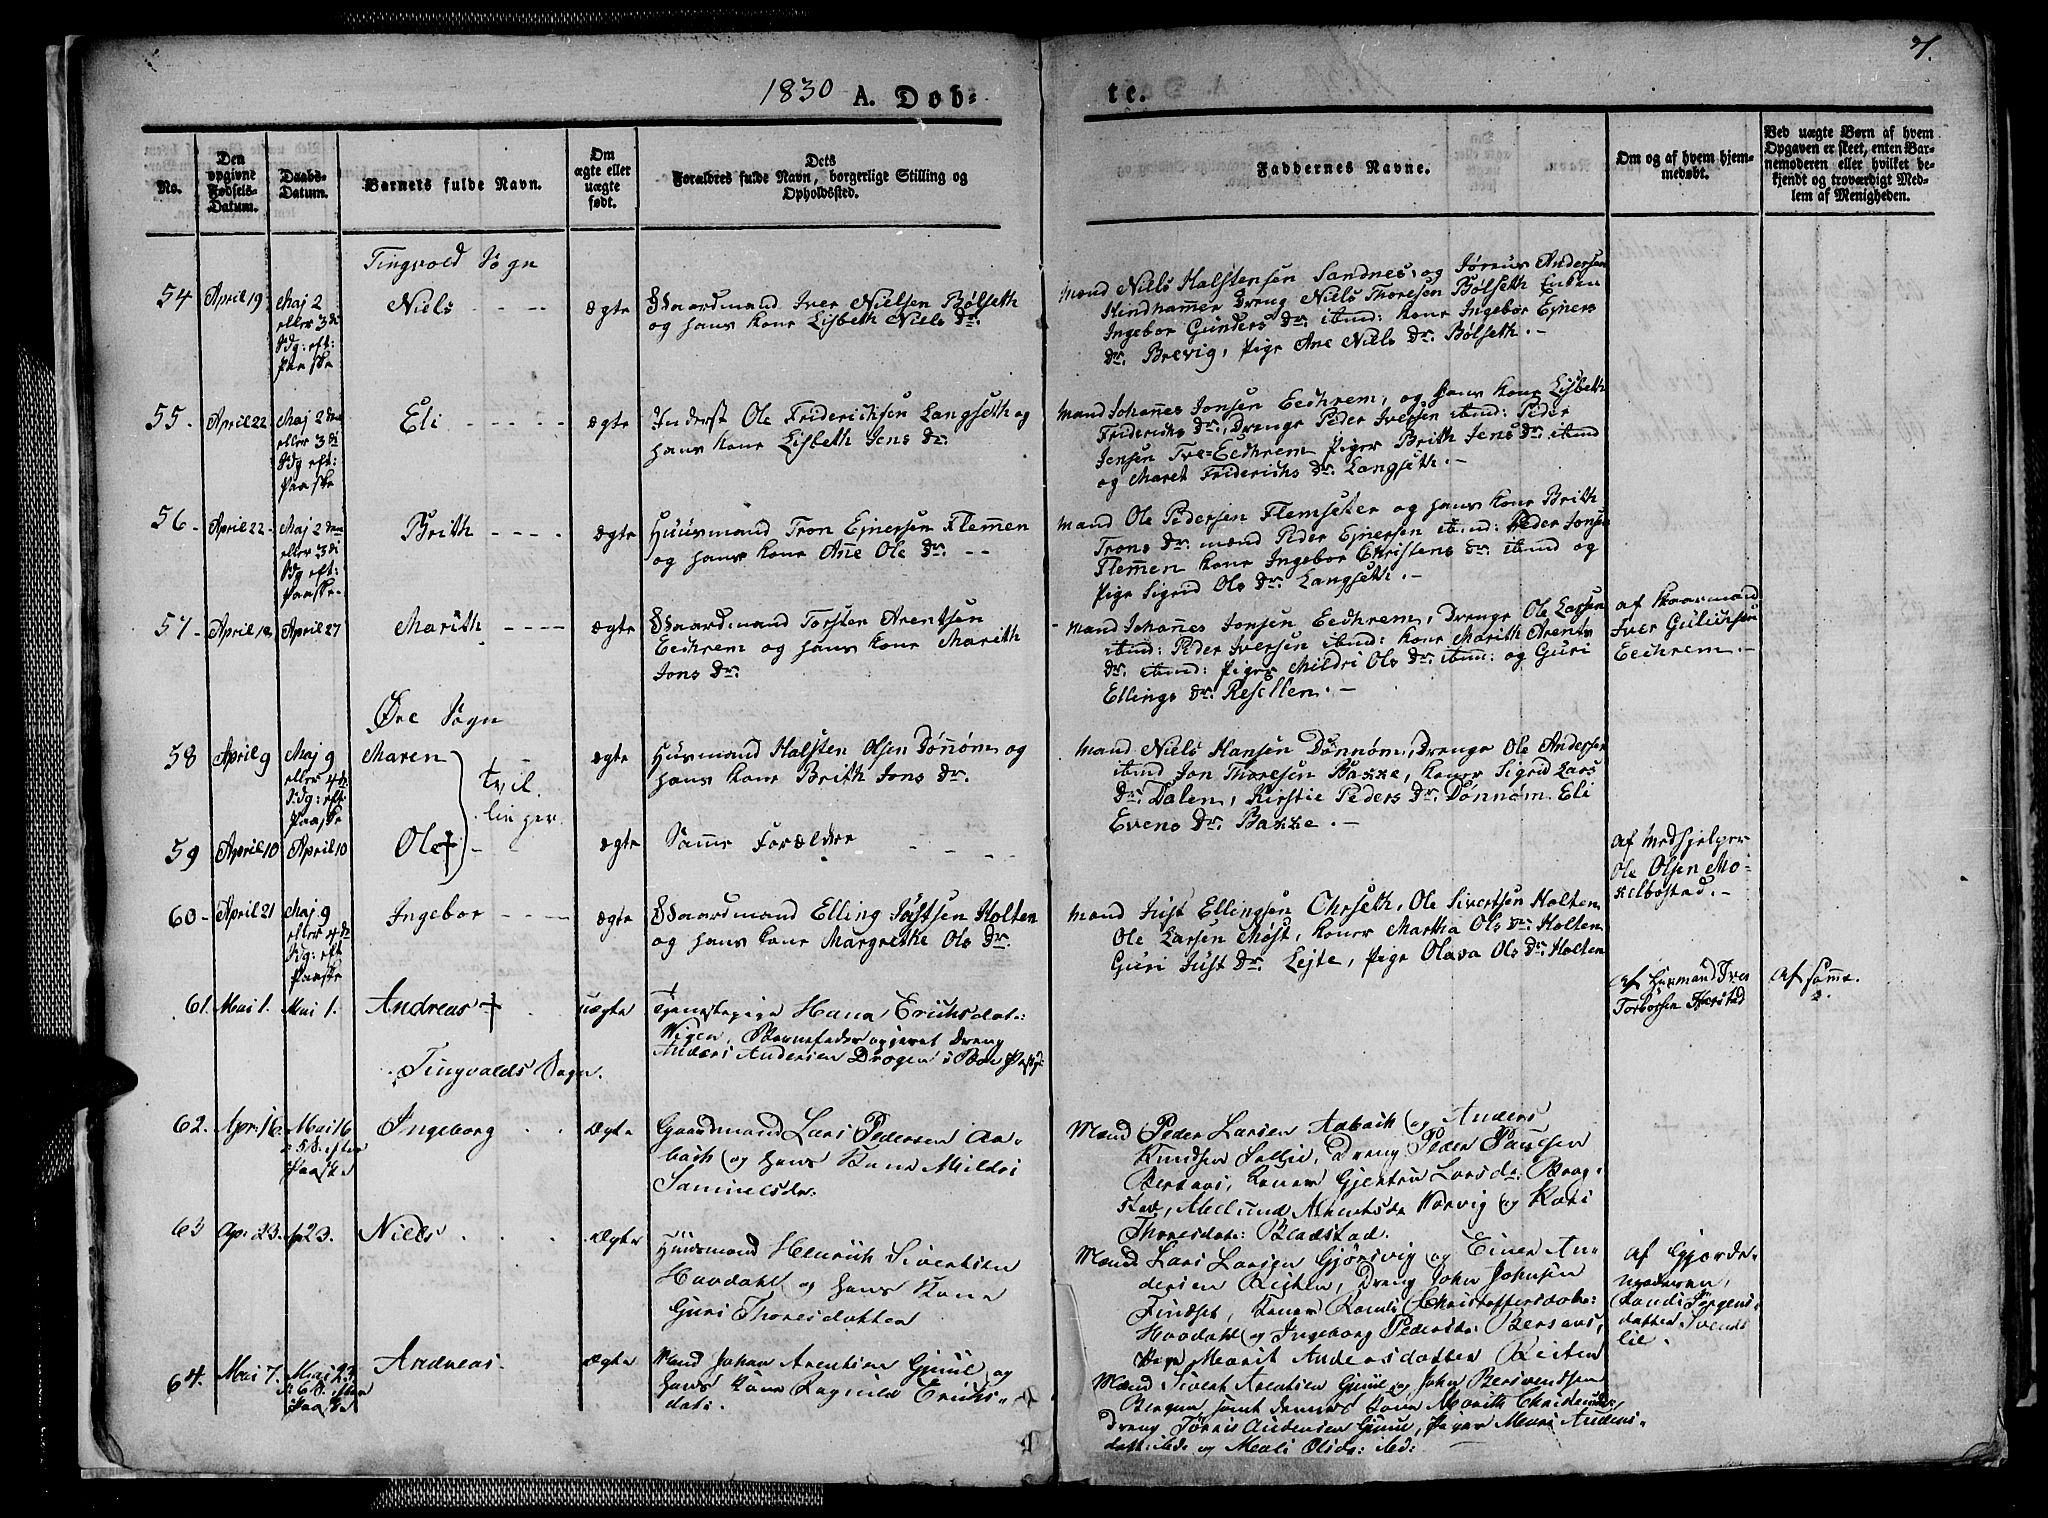 1830 A. Døb-
te.
7.
No.
Den opgivne Fødsels-Datum.
Daabs-Datum.
Barnets fulde Navn.
Om ægte eller uægte født.
Dets Forældres fulde Navn, borgerlige Stilling og Opholdssted.
Faddernes Navne.
Om og af hvem hjem-
medøbt.
Ved uægte Børn af hvem
Opgaven er skeet, enten Bar-
nemoderen eller hvilket be-
kjendt og troværdigt Med-
lem af Menigheden.
Tingvold Sogn
54 April 19 Maj 2 eller 3di Sdg: eft: Paaske Niels ægte
Gaardmand Iver Nielsen Bølseth
og hans Kone Lisbeth Niels Dr.
Mænd Niels Halstensen Sandnes, og Andersen
Hindhammer Dreng Niels Thoresen Bølseth Enken
Ingebor Gunders Dr. ibmd: Kone Ingebor Ejners
Dr. Brevig, Pige Ane Niels Dr. Bølseth.-
55- April 22 Maj 2den eller 3di Sdg eft: Paaske Eli ægte
Inderst Ole Friderichsen Langseth og
hans Kone Lisbeth Jens Dr.
Mand Johannes Jonsen Eedhrem, og hans Kone Lisbeth
Friderichs Dr., Drenge Peder Iversen ibmd: Peder
Jensen Tve-Eedhrem Piger Brith Jens Dr. ibmd
og Maret Friderichs Dr. Langseth.-
56- April 22- Maj 2den eller 3di Sdg eft: Paaske- Brith ægte
Huusmand Tron Ejnersen Flemmen
og hans Kone Ane Ole Dr.
Mand Ole Pedersen Flemseter og hans Kone Brith
Trons Dr. mænd Peder Ejnersen ibmd: Peder Jonsen
Flemmen Kone Ingebor Christens Dr. ibmd og
Pige Sigrid Ols Dr. Langseth.-
57- April April 27 Marith ægte
Gaardmand Torsten Arentsen
Eedhrem og hans Kone Marith
Jons Dr.
Mand Johannes Jonsen Eedhrem, Drenge Ole Larsen
ibmd: Peder Iversen ibmd: Kone Marith Arents
Dr. ibmd: Piger Mildri Ols Dr. ibm: og Guri
Ellings Dr. Resellen.-
af Skaarmand
Iver Gulichsen
Eedhrem.-
Øre Sogn
58 April 9 Maj 9 eller 4de Sdg: eft Paaske Maren tvil-
linger ægte
Huusmand Halsten Olsen Dønnøm og
hans Kone Brith Jons Dr.
Mand Niels Hansen Dønnøm, Drenge Ole Andersen
ibmd Jon Thoresen Bakke, Koner Sigrid Lars
Dr. Dalen, Kirstie Peders Dr. Dønnøm Eli
Evens Dr. Bakke.-
59 April 10 April 10 Ole † ægte
Samme Forældre
af Medhjelper
Ole Olsen Mo-
kelbostad.-
60- April 21 Maj 9 eller 4de Sdg: eft Paaske Ingebor ægte
Gaardmand Elling Justsen Holten
og hans Kone Margrethe Ols Dr.
Mand Just Ellingsen Ohrseth, Ole Sivertsen Holten
Ole Larsen Møst, Koner Martha Ols Dr. Holten
Guri Just Dr. Lejte, Pige Olava Ols Dr. Holten
61. Mai 1. Mai 1. Andreas † uægte
Tjenestepige Hana Erichsdat:
Vigen, Barnefader opgivet Dreng
Anders Andersen Drogen i Boe
af Husmand Iver
Torbersen Herstad
af samme.
Tingvolds Sogn.
62. Apr. 16. Mai 16 5 S. efter Paaske Ingeborg ægte
Gaardmand Lars Pedersen Aa-
bach og hans Kone Mildri
Samuelsdr.
Mænd Peder Larsen Aabach og Anders
Knudsen Sollie, Dreng Peder Paulsen
Bersaas, Koner Gjertru Larsdr. Brog-
stad, Korvig og Kari
Thoresdat: Bladstad.
63 Apr. 23. Ap 23. Niels ægte
Huusmand Henrich Sivertsen
Hovdahl og hans Kone
Guri Thoresdatter
Mænd Lars Larsen Gjørsvig og Einer An-
dersen Reiten, Dreng John Johnsen
Findset, Koner Christoffersdat:
Hovdahl og Ingeborg Pedersdr: Bersaas,
Pige Marit Andersdatter Reiten
af Gjorde-
moderen,
Randi Jørgens-
datter Svends-
lie.
64. Mai 7. Mai 23. 6 S. efter Paaske Andreas. ægte
Mand Johan Arentsen Gjuul og
hans Kone Ragnild Erichs-
dat:
Mænd Sivert Arentsen Gjuul og John Bersvendsen
Bergem samt dennes Kone Marith
Dreng Andersen Gjuul, Piger Mari Anders-
datt: ibd: og Marli Olsdr: ibd: